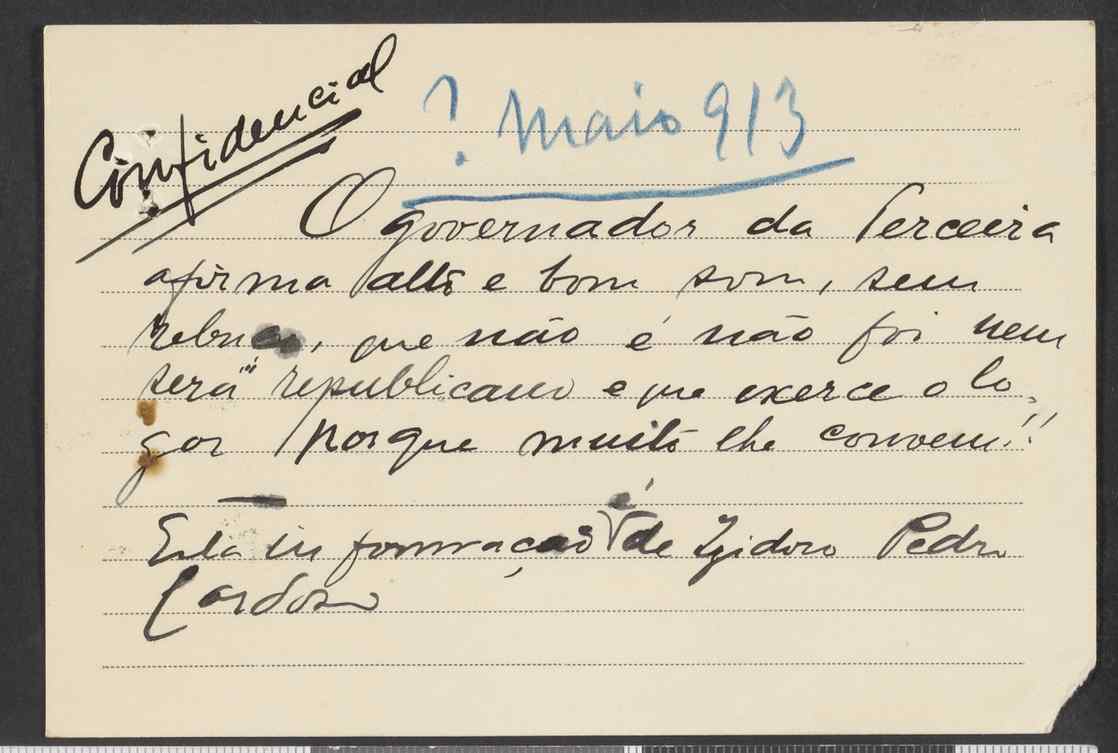 Confidencial
? Maio 913
O governador da Terceira
afirma alto e bom som, sem
rebuço, que não é não foi nem
será republicano e que exerce o lo-
gar porque muito lhe convem!!
Esta informação é de Izidoro Pedro
Cardoso